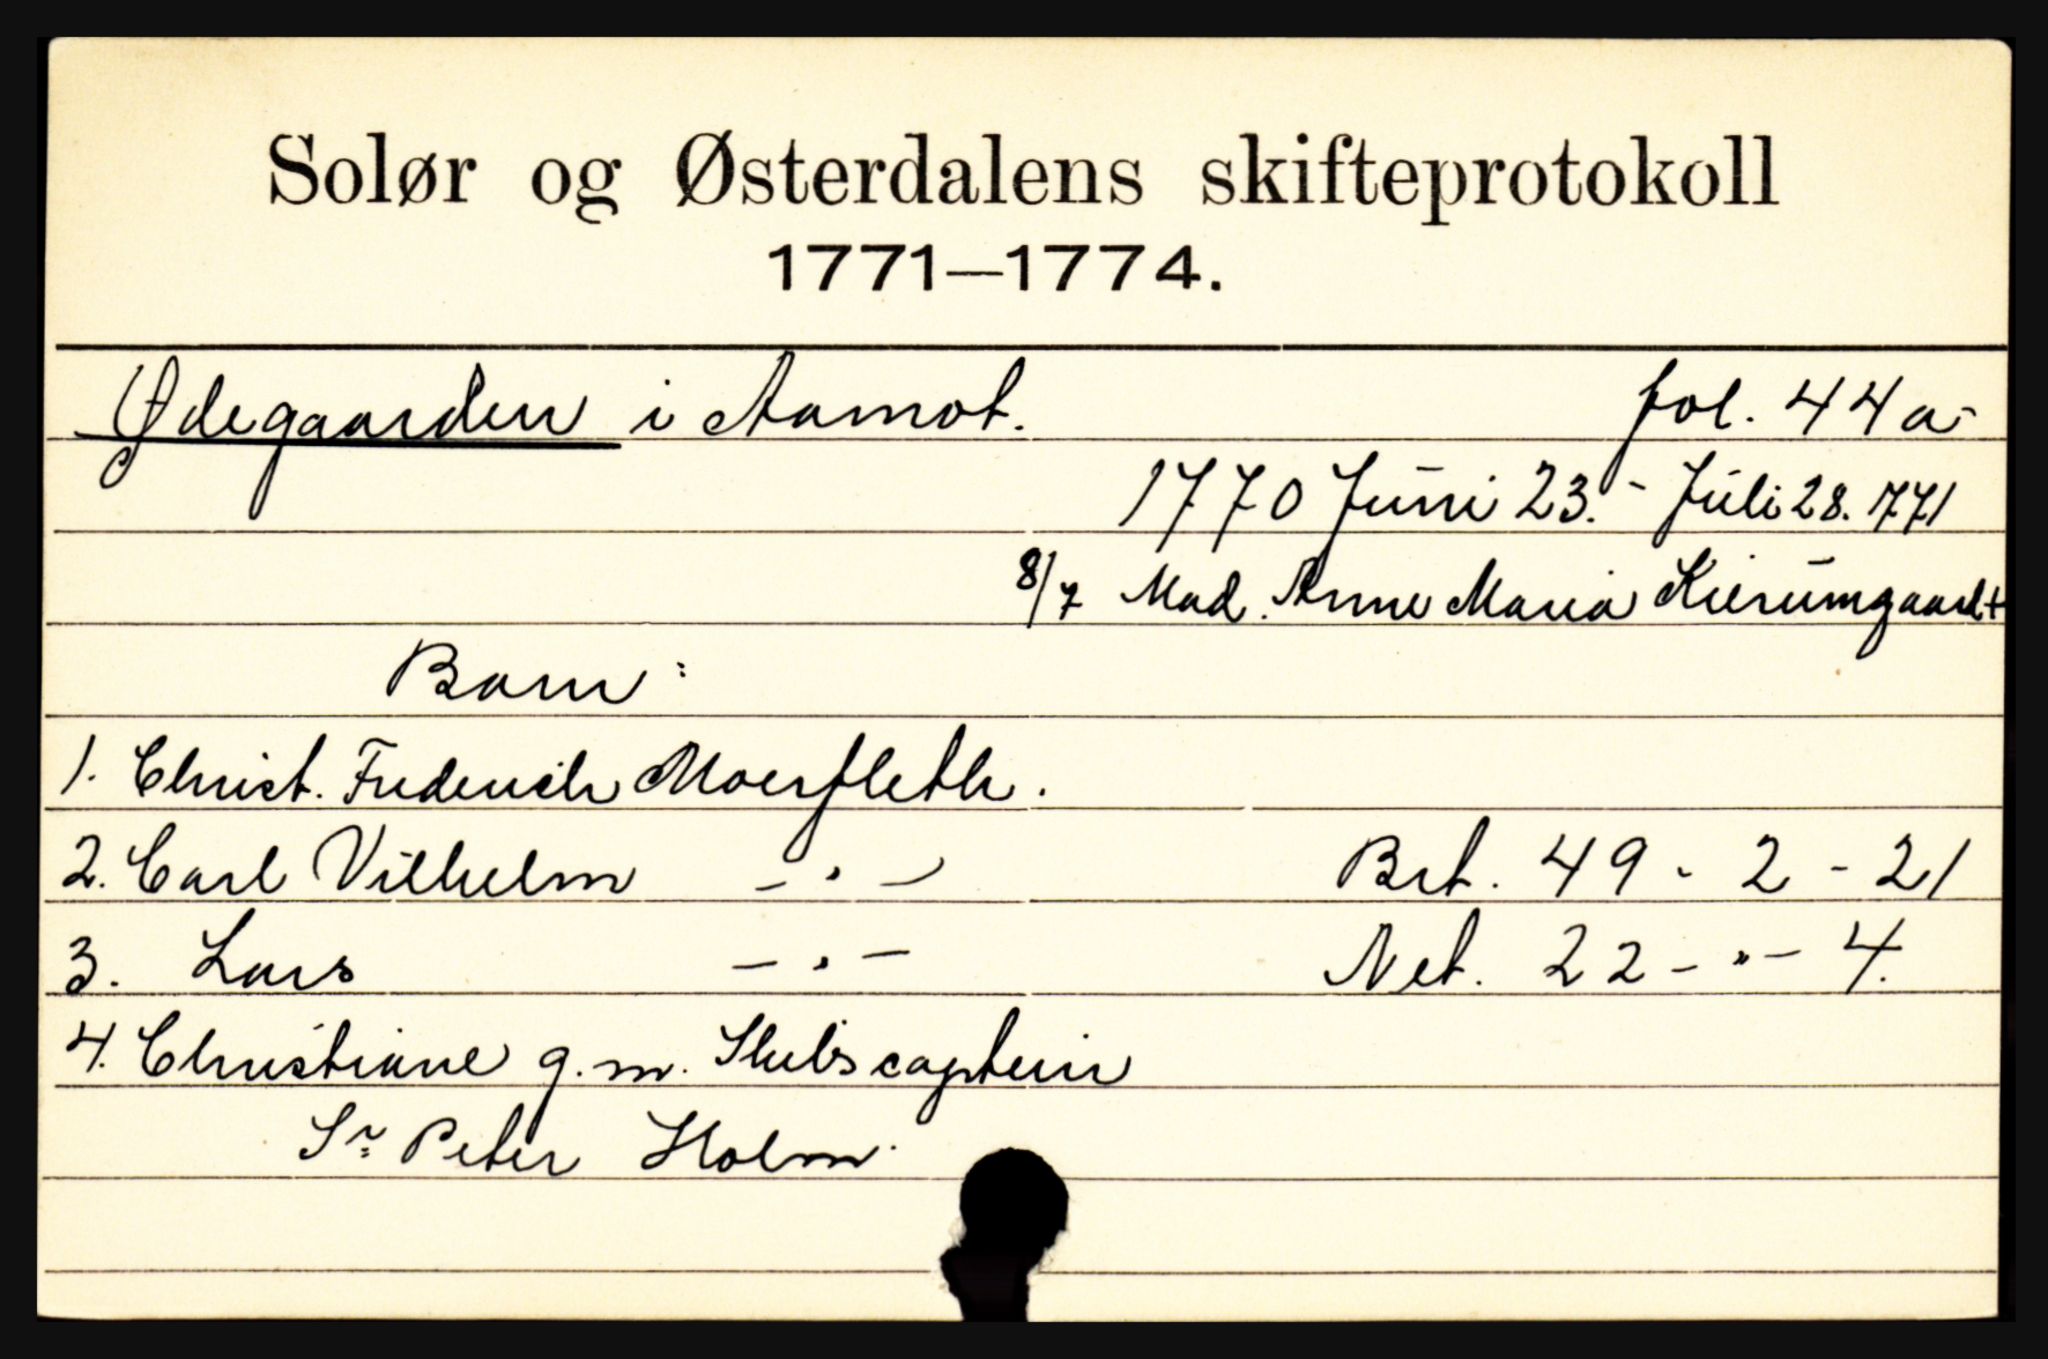 Solør og Østerdalens skifteprotokoll
1771—1774.
Ødegaarden i Aamot. fol. 44a
1770 Juni 23. - Juli 28. 1771
8/7 Mad. Anne Maria Kierumgaard +
Barn:
1. Christ. Frederich Moerfleth.
2. Carl Vilhelm - " - Brt. 49 - 2 - 21
3. Lars - " - Net. 22 - " - 4.
4. Christiane g.m. Skibscaptein
Sr. Peter Holm.